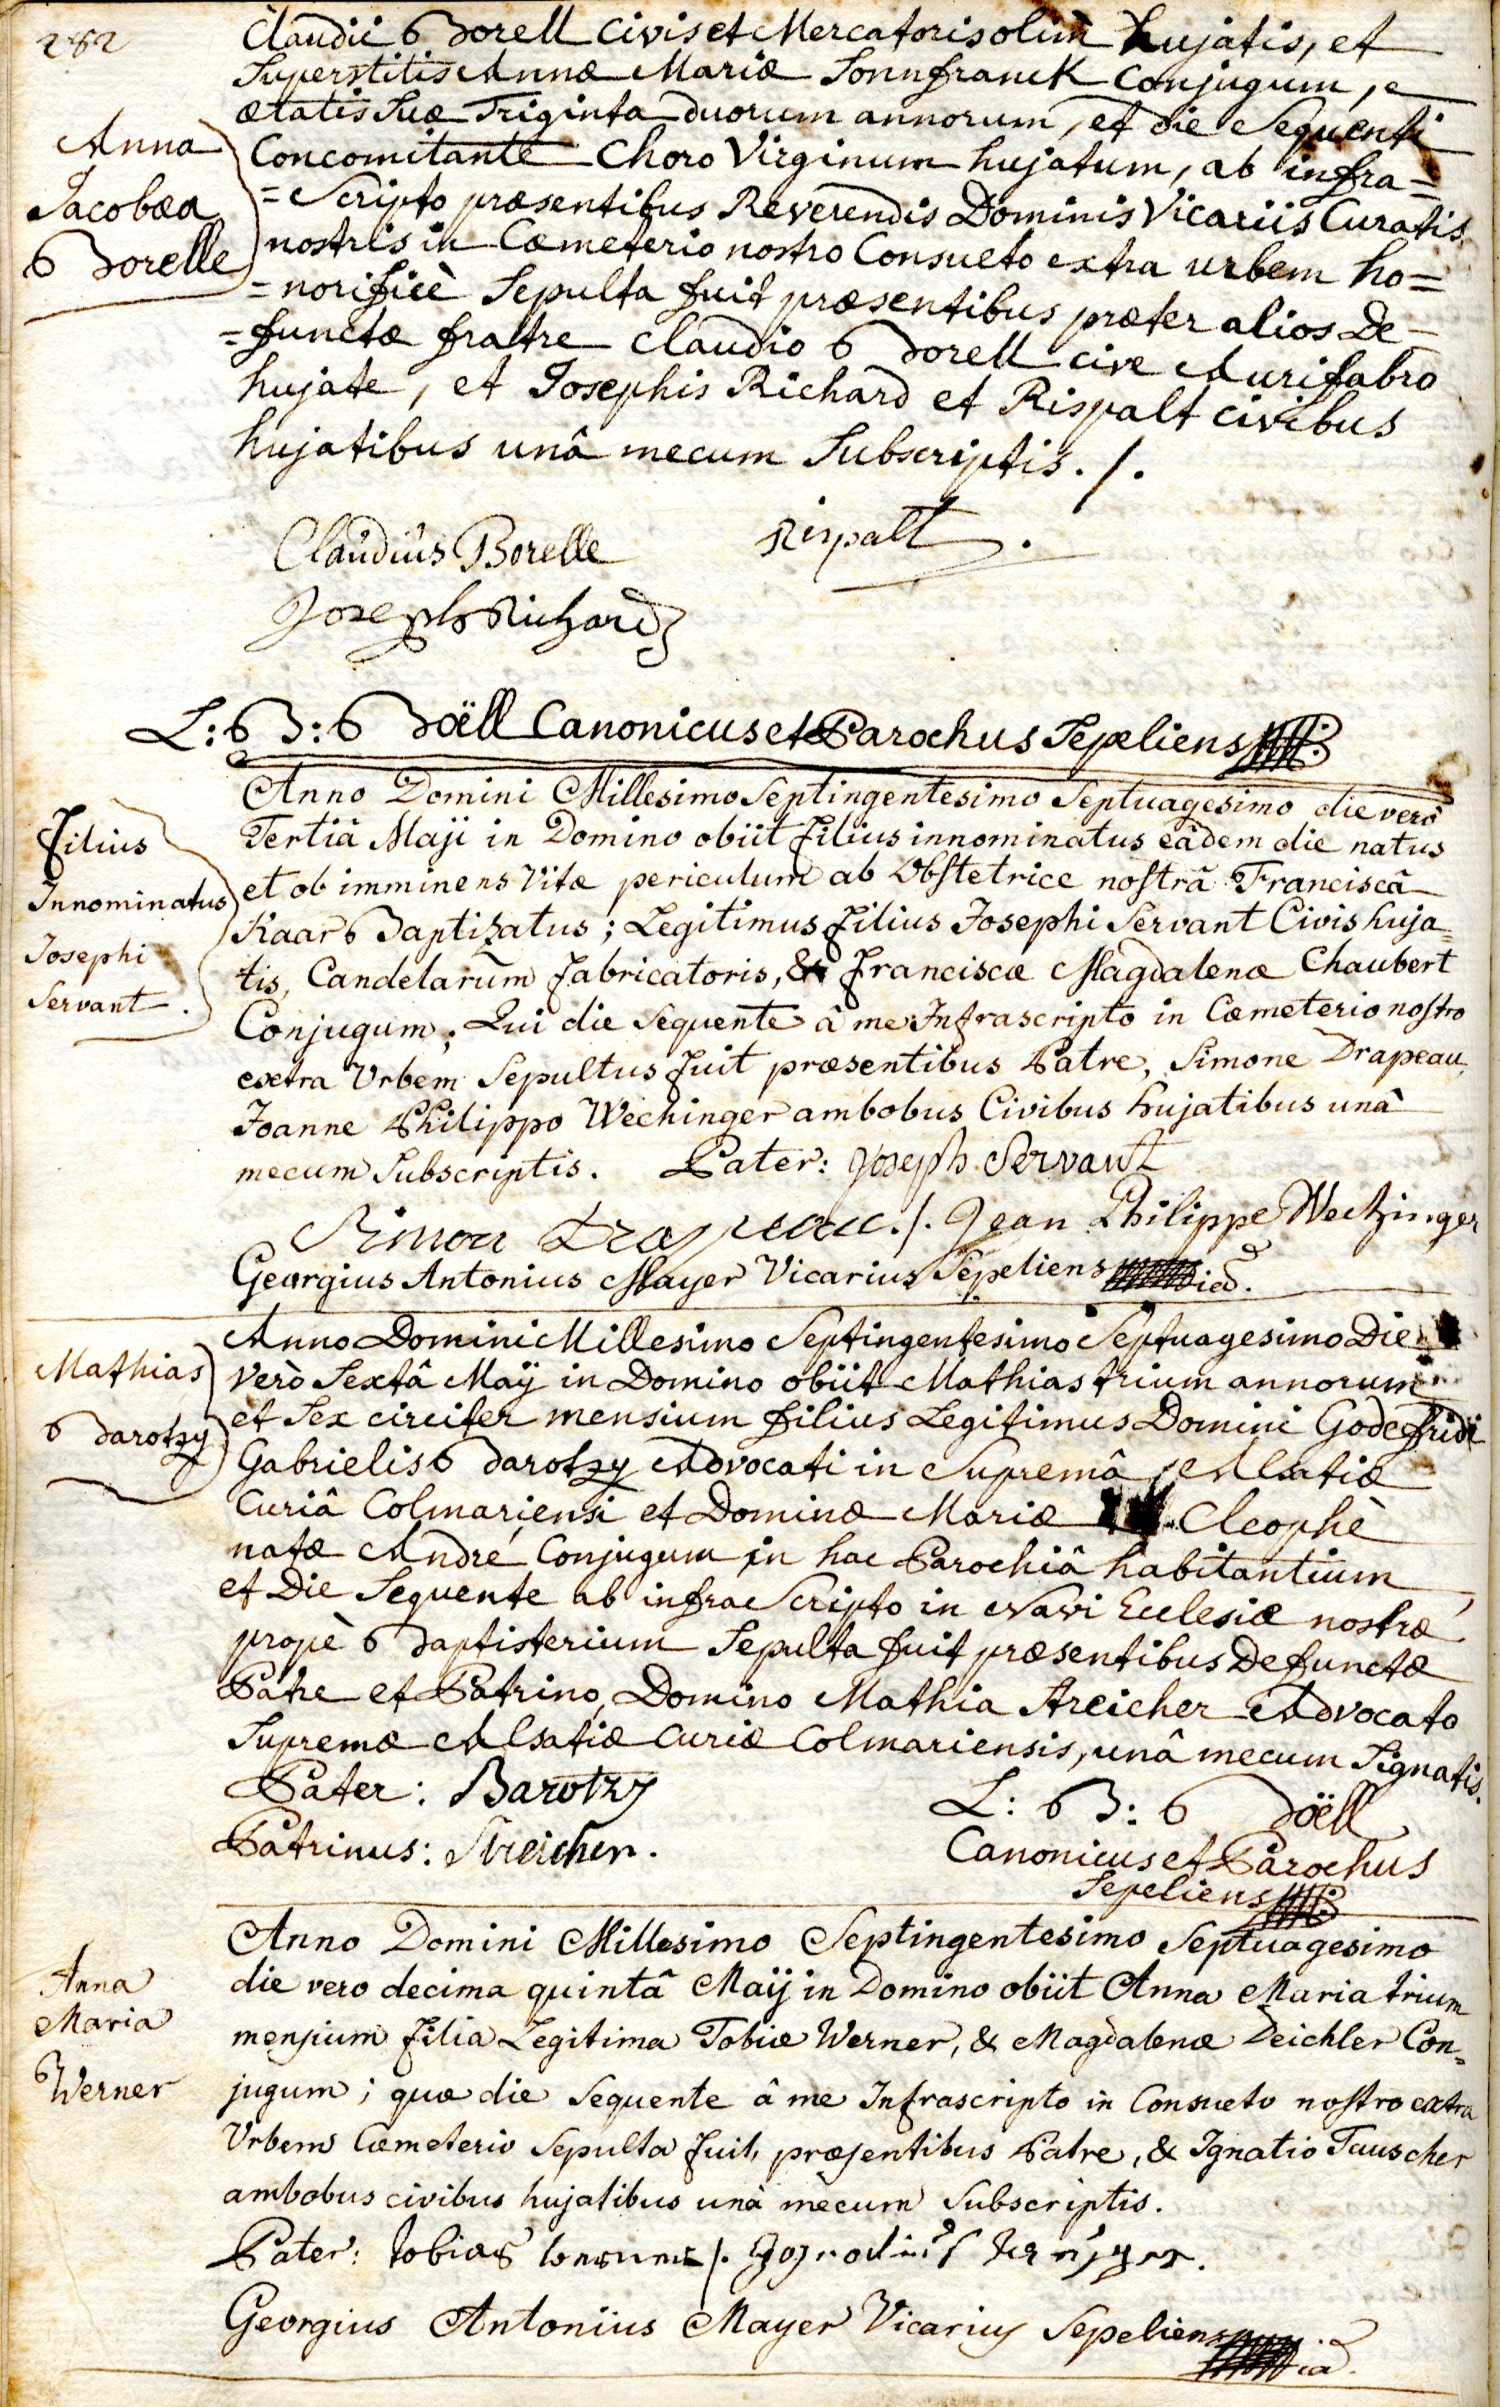 282
Claudii Borell Civis et Mercatoris olim hujatis, et
Superstitis Annæ Mariæ Sonnfranck Conjugum,
ætatis Suæ Triginta duorum annorum, et die Sequenti
Anna
Jacobæa
Borelle
Concomitante Choro Virginum hujatum, ab infra=
=Scripto præsentibus Reverendis Dominis Vicariis Curatis
nostris in Cœmeterio nostro Consueto extra urbem ho=
=norificè Sepulta fuit præsentibus præter alios De-
=functæ fratre Claudio Borell cive Aurifabro
hujate, et Josephis Richard et Rispalt civibus
hujatibus unâ mecum Subscriptis./.
Claudius Borelle
Rispalt.
Joseph Richard
L: B: Boëll Canonicus et Parochus Sepeliens
Filius
Innominatus
Josephi
Servant.
Anno Domini Millesimo Septingentesimo Septuagesimo die verò
Tertiâ Maji in Domino obiit filius innominatus eâdem die natus
et ob imminens Vitæ periculum ab Obstetrice nostrâ Franciscâ
Kaar Baptizatus; Legitimus filius Josephi Servant Civis huja=
tis, Candelarum fabricatoris, & Franciscæ Magdalenæ Chaubert
Conjugum; Qui die Sequente â me Infrascripto in Cœmeterio nostro
extra Urbem Sepultus fuit præsentibus Patre, Simone Drapeau,
Joanne Philippo Wechinger ambobus Civibus hujatibus unâ
mecum Subscriptis. Pater: Joseph Servant
Simon Drapeau./. Jean Philippe Wechinger
Georgius Antonius Mayer Vicarius Sepeliens
Mathias
Barotzy
Anno Domini Millesimo Septingentesimo Septuagesimo Die
verò Sextâ Maÿ in Domino obiit Mathias trium annorum
et Sex circiter mensium filius Legitimus Domini Godefridi
Gabrielis Barotzy Advocati in Supremâ Alsatiæ
Curiâ Colmariensi et Dominæ Mariæ Cleophè
natæ André Conjugum in hac Parochiâ habitantium,
et Die Sequente ab infra Scripto in Navi Ecclesiæ nostræ
propè Baptisterium Sepulta fuit præsentibus Defunctæ
Patre et Patrino, Domino Mathia Streicher Advocato
Supremæ Alsatiæ Curiæ Colmariensis, unâ mecum Signatis.
Pater: Barotzy
Patrinus: Streicher.
L: B: Boëll
Canonicus et Parochus
Sepeliens
Anna
Maria
Werner
Anno Domini Millesimo Septingentesimo Septuagesimo
die vero decima quintâ Maÿ in Domino obiit Anna Maria trium
mensium filia Legitima Tobiæ Werner, & Magdalenæ Deichler Con=
jugum; quæ die Sequente â me Infrascripto in Consueto nostro extra
Urbem Cœmeterio Sepulta fuit, præsentibus Patre, & Ignatio Tauscher
ambobus civibus hujatibus unà mecum Subscriptis.
Pater: Tobias
Georgius Antonius Mayer Vicarius Sepeliens